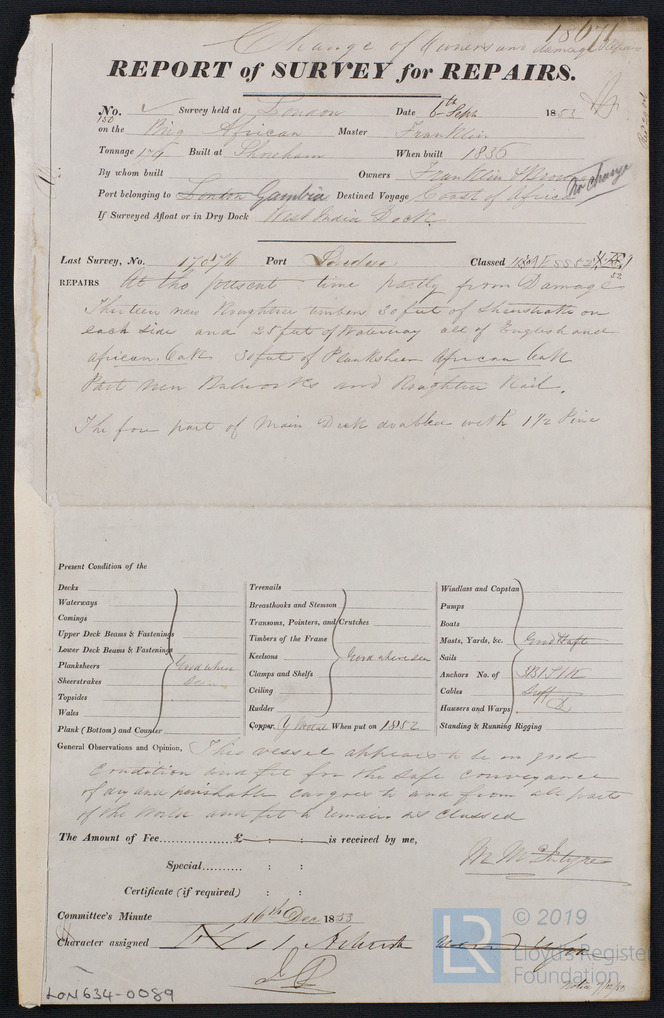 18671
Change of Owners and damage Repairs
REPORT of SURVEY for REPAIRS.
No. Survey held at London Date 6th Sept 1853
on the Brig African Master Franklin
150
Tonnage Built at Shoreham When built 1836
By whom built Owners Franklin &
no change
Port belonging to London Gambia Destined Voyage Coast of Africa
If Surveyed Afloat or in Dry Dock West India Dock
Last Survey, No. Port London Classed
52
REPAIRS At the present time partly from Damage
Thirteen new Roughtree timbers 30 feet of Sheerstrake on
each side and 25 feet of Waterway all of English and
African Oak 30 feet of Planksheer African Oak
Part new Bulworks and Roughtree Rail.
The fore part of Main Deck doubled with 1 1/2 Pine
Present Condition of the
Decks
Waterways
Comings
Upper Deck Beams & Fastenings
Lower Deck Beams & Fastenings
Planksheers Good where
Sheerstrakes seen
Topsides
Wales
Plank (Bottom) and Counter
Treenails
Breasthooks and Stemson
Transoms, Pointers, and Crutches
Timbers of the Frame
Keelsons Good where seen
Clamps and Shelfs
Ceiling
Rudder
Copper, Y Metal When put on 1852
Windlass and Capstan
Pumps
Boats
Masts, Yards, &c. Good
Sails
Anchors No. of 3B 1S 1K
Cables Suff
Hawsers and Warps
Standing & Running Rigging
General Observations and Opinion, This vessel appears to be in good
condition and fit for the safe conveyance
of dry and perishable cargoes to and from all parts
of the World and fit to remain as classed
The Amount of Fee £ : : is received by me,
Special : :
W McIntyre
Certificate (if required) : :
Committee's Minute 16th Dec 1853
Character assigned
LON634-0089
LR
© 2019
Lloyd's Register
Foundation